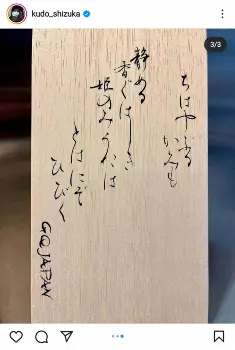 kudo_shizuka
3/3
ちはやふる
かみも
静める
香ぐはしき
姫のみうたは
とはにぞ
ひびく
GQJAPAN